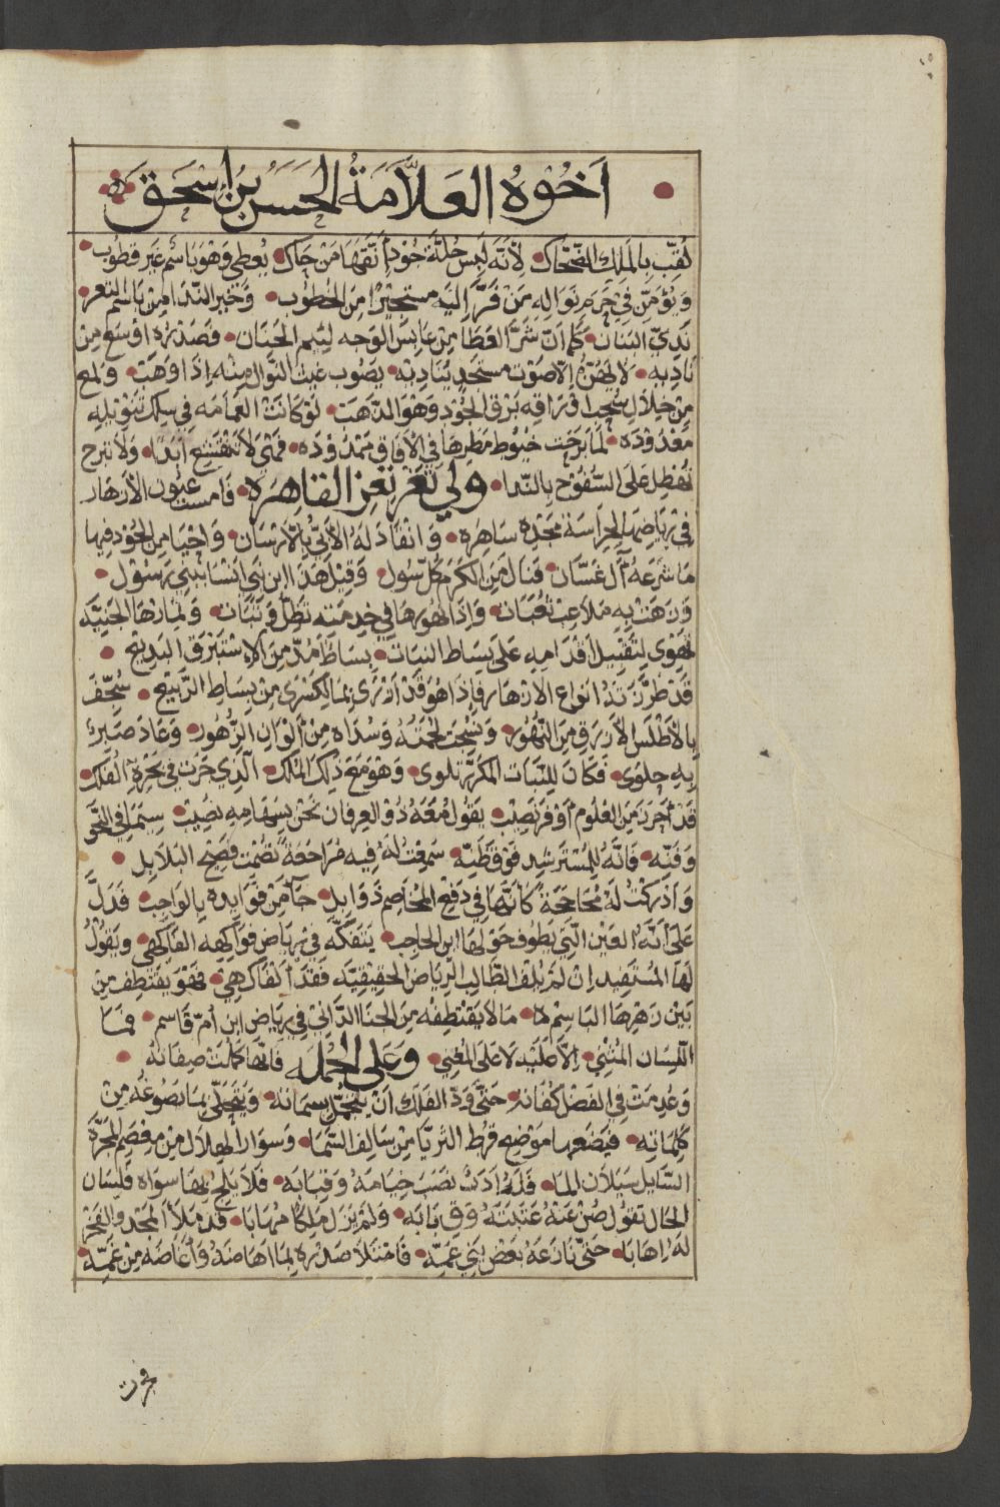 اَخُوهُ العَلَّامَةُ الحَسَن بنُ إسْحَقَ
لُقّبَ بِالمَلِك الضّحّاك لِأنّه لَبِسَ حُلّةَ جُودٍ أتقنها مَنْ حَاك يُعطى وَهوَ باسم غير قطوب
وَيؤمّن في حَرَمِ نَوَالِهِ مَن فَرَّ إليه مستجيرًا مِنَ الخُطوُب وَخير النّدا مِن باسم الثغر
نَدِيّ البَنَان كَمَا انّ شَرَّ العَطَا مِن عابس الوَجه لئيم الجَنَان فَصَدرُه اوْسَع مِنْ
نَادِيهِ لا يَهُزّهُ اِلّا صَوْت مستجدٍ يُنَادِيه يَصُوب غيث النّوَال مِنْه إذَا وَهَبْ وَلمع
مِن خِلالِ سُحب اوْرَاقه بَرْق الجُوْد وَهْوَ الذّهَبْ لَوْ كَانَتْ الغَمامَه في سِلك تنويلِهِ
مَعْدُوْدَه لما بَرَحَت خيُوُط مَطرِها في الآفاق مَمدُوْدَه فمتى لا تنقشِع أبَدًا وَلا تبرح
تُهطِل عَلَى السّفُوْح بالنّدا وَلي تَعز تعز القَاهِرَه فأمست عيون الأزهار
فى رياضها لحِرَاسَة مَجْدِه سَاهِرَه وَانقَادَ لَهُ الأبيّ بالارْسَان وَاحْيَا مِن الجُوْد فيها
مَا شرَعَهُ آل غَسَّان فَنَالَ مِنَ الكَرَمِ كُلّ سُول وَقَبْلَ هَذَا اِبن نبي انْسَا ببَنِي رَسُوْل
وَزَهَتْ بِهِ مَلاعِبْ ثعْبَات وَاِذَا نهُورها في خِدمَته تظلّ وَتَبَات وَثمارُهَا الجَنِيَّه
تَهْوِى لِتَقبيل أقدَامِهِ عَلَى بِسَاط النبات بِسَاط مُدّ مِنَ الاِسْتَبْرَق البَدِيْع
قَدْ طرَّزَتهُ انوَاع الازْهَار فإذا هُوَ قَدْ ازْرَى بمَا لِكسْرَى مِن بِسَاطِ الرّبِيْع سُجّفَ
بِالأطْلَسِ الأزْرَق مِنَ النّهُوْر وَنُسِجَتْ لُحْمَتُهُ وَسُدَاه مِنْ ألْوَانِ الزّهُوْر وَعَادَ صَبِرُ
بِهِ حِلوَى فَكَانَ لِلنّبَات المكرَّر تلوى وَهوَ مَعَ ذلِكَ المُلك الّذِي جَرَت في بَحْرِهِ الفُلك
قَدْ أحْرَزَ مِنَ العُلُوْمِ أوْفَرَ نَصِيْب يَقُولُ مَعَهُ ذُوْ العِرفان نَحْنُ بسِهَامِهِ نُصِيْب سِيَمَا في النَّحوِ
وَفَنِّه فَانّهُ لِلْمُسْتَرشِد فوْقَ ظَنِّه سَمِعْتُ لَهُ فِيه مُرَاجَعَةً تُصْمِت فصِيْحَ البَلابِل
وَاَدْرَكْتُ لَهُ مُحَاجَجَةً كَانّهَا في دَفْعِ المُخَاصِم ذَوَابِل جَآ مِنْ فوَايِده بِالوَاجِب فَدَلَّ
عَلَى أنّهُ العَيْن الّتِي يَطُوْف حَوْلهَا ابن الحَاجِب يَتَفَكّه في رِيَاض فوَاكِهه الفاكِهي وَيَقُوْلُ
لَهَا المُسْتَفِيد اِن لَمْ يُلْفِ الطّالِب الرياض الحقِيقِيّه فَقَدْ ألْفاك هِيَ فَهُوَ يَقْتَطِف مِن
بَيْنِ زَهْرِهَا البَاسِم مَا لَا يَقْتَطِفْه مِنَ الجَنَا الدّانِي في رِيَاض ابن أمّ قَاسِم فمَا
اللّسَان المُثنِي اِلّا عَلَيْهِ لا عَلَى المغنِي وَعَلَى الجُمْلَه فانّهَا كَمُلَتْ صِفَاتُه
وَعُدِمَتْ في الفَضلِ كُفَاتُه حَتّى وَدّ الفَلَك انْ يَتجَمّل بِسِمَاتِه وَيَتحَلّى بمَا يَصُوْغُه مِنْ
كَلِمَاتِه فيَضعها مَوْضِع قُرط الثرَيّا مِنْ سَالِف السّمَا وَسوَارِ الهِلَال مِن مِعْصَم المَجرّة
السّايِل سَيَلَان المَا فَلَهُ أدَبٌ نَصَبَ خِيَامَهُ وَقِبَابَه فَلا يَلِج بهَا سوَاه فَلِسَان
الحَال تقُول صُنْ عَنْهُ عَتَبَتَهُ وَقِ بَابَه وَلَمْ يَزَل مَلِكًا مُهَابَا قَدْ مَلأ المَجْد وَالفَخْرُ
لَهُ إهَابَا حَتّى نَازَعَهُ بَعْض بَنِي عَمِّه فَامْتَلَأ صَدْرُه بمَا اهَاضَهُ وَأغاضَه مِنْ غَمِّه
فجرت